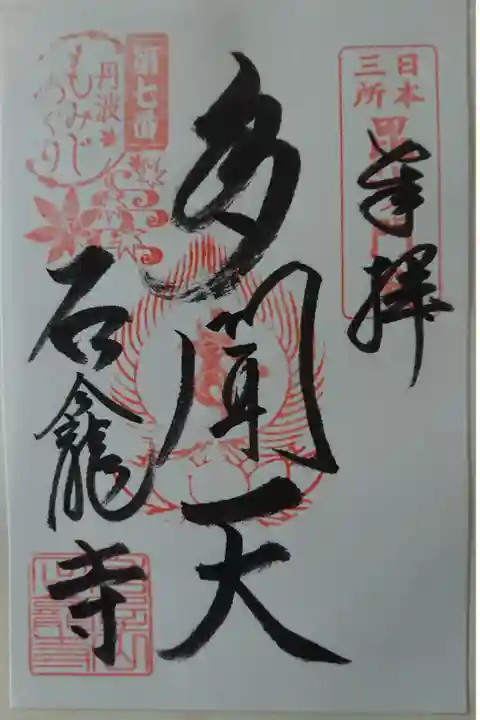 日本
三所
奉拝
多聞天
第七番
丹波
もみじ
めぐり
石龕寺